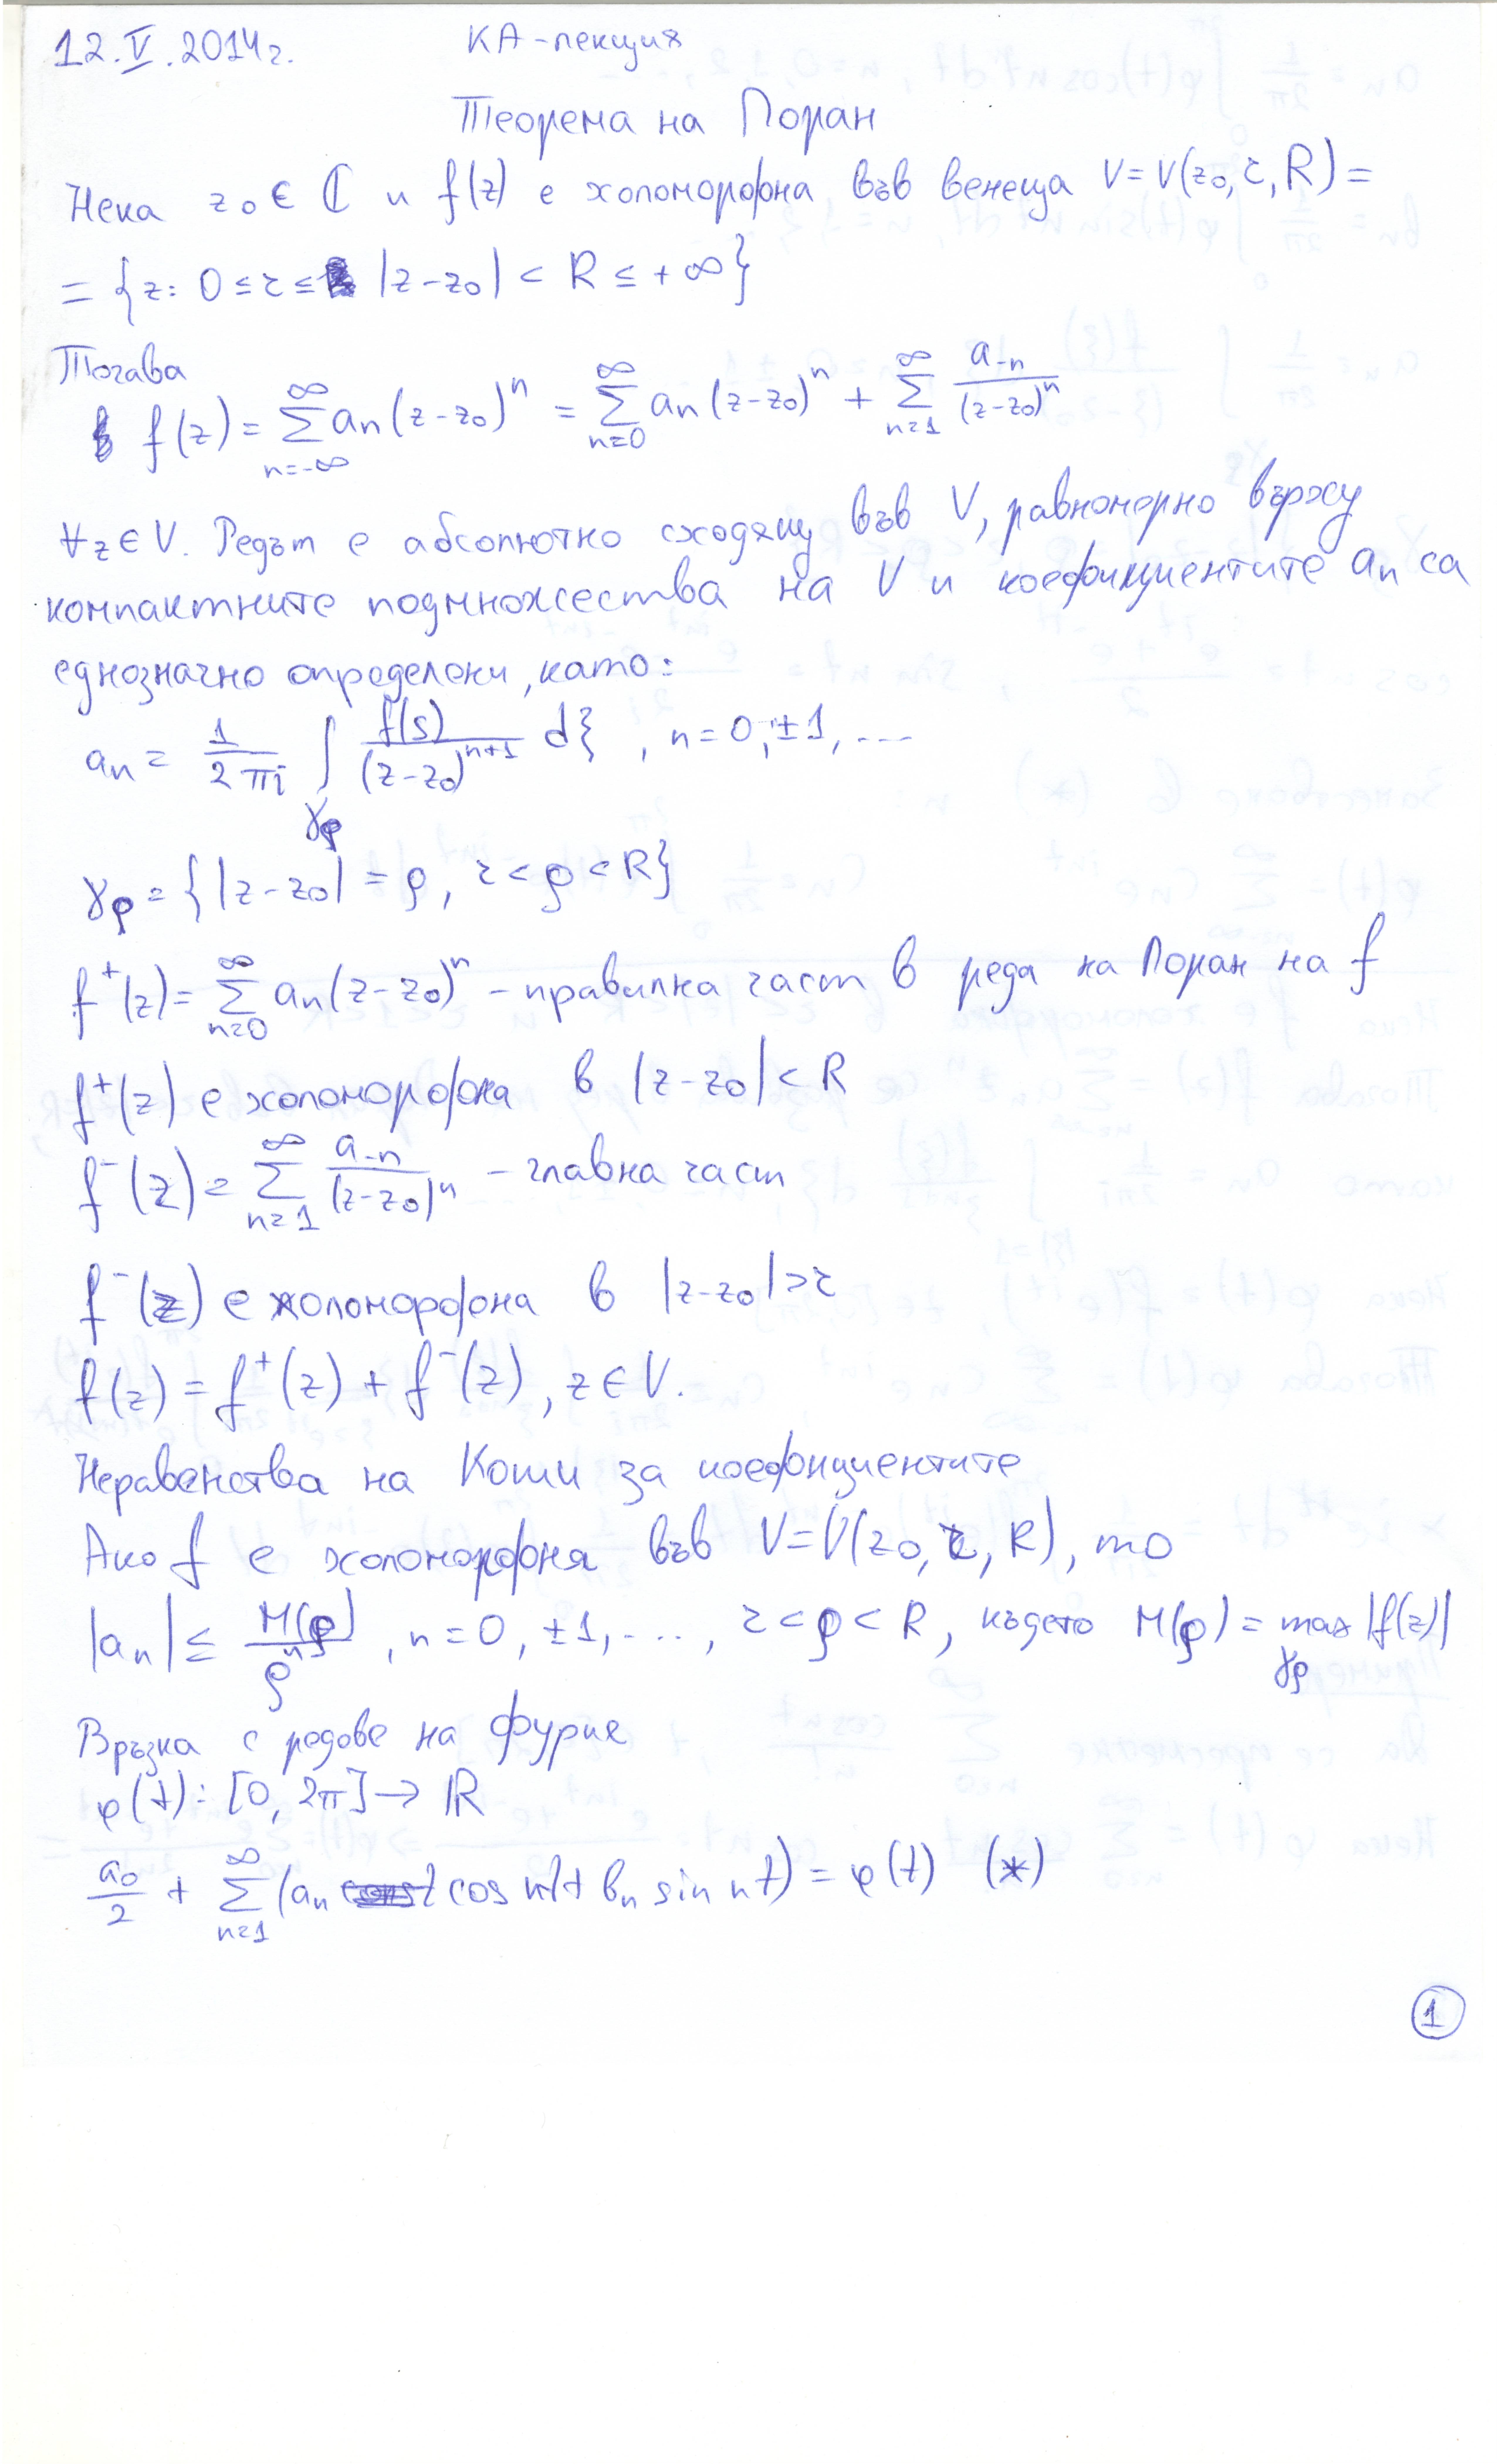 12.V.2014г. КА-лекция
Теорема на Лоран
Нека z₀ ∈ ℂ и f(z) е холоморфна във венеца V = V(z₀, r, R) =
= {z: 0 ≤ r ≤ |z-z₀| < R ≤ +∞}
Тогава
f(z) = ∑_{n=-∞}^{∞} aₙ(z-z₀)ⁿ = ∑_{n=0}^{∞} aₙ(z-z₀)ⁿ + ∑_{n=1}^{∞} a₋ₙ/(z-z₀)ⁿ
∀z ∈ V. Редът е абсолютно сходящ във V, равномерно върху
компактните подмножества на V и коефициентите aₙ са
еднозначно определени, като:
aₙ = 1/(2πi) ∫_{γρ} f(s)/(z-z₀)ⁿ⁺¹ dξ, n = 0, ±1, ...
γρ = {|z-z₀| = ρ, r < ρ < R}
f⁺(z) = ∑_{n=0}^{∞} aₙ(z-z₀)ⁿ - правилна част в реда на Лоран на f
f⁺(z) е холоморфна в |z-z₀| < R
f⁻(z) = ∑_{n=1}^{∞} a₋ₙ/(z-z₀)ⁿ - главна част
f⁻(z) е холоморфна в |z-z₀| > r
f(z) = f⁺(z) + f⁻(z), z ∈ V.
Неравенства на Коши за коефициентите
Ако f е холоморфна във V = V(z₀, r, R), то
|aₙ| ≤ M(ρ)/ρⁿ, n = 0, ±1, ..., r < ρ < R, където M(ρ) = max_{γρ} |f(z)|
Връзка с редове на Фурие
φ(t): [0, 2π] → ℝ
a₀/2 + ∑_{n=1}^{∞} (aₙ cos nt + bₙ sin nt) = φ(t) (*)
1